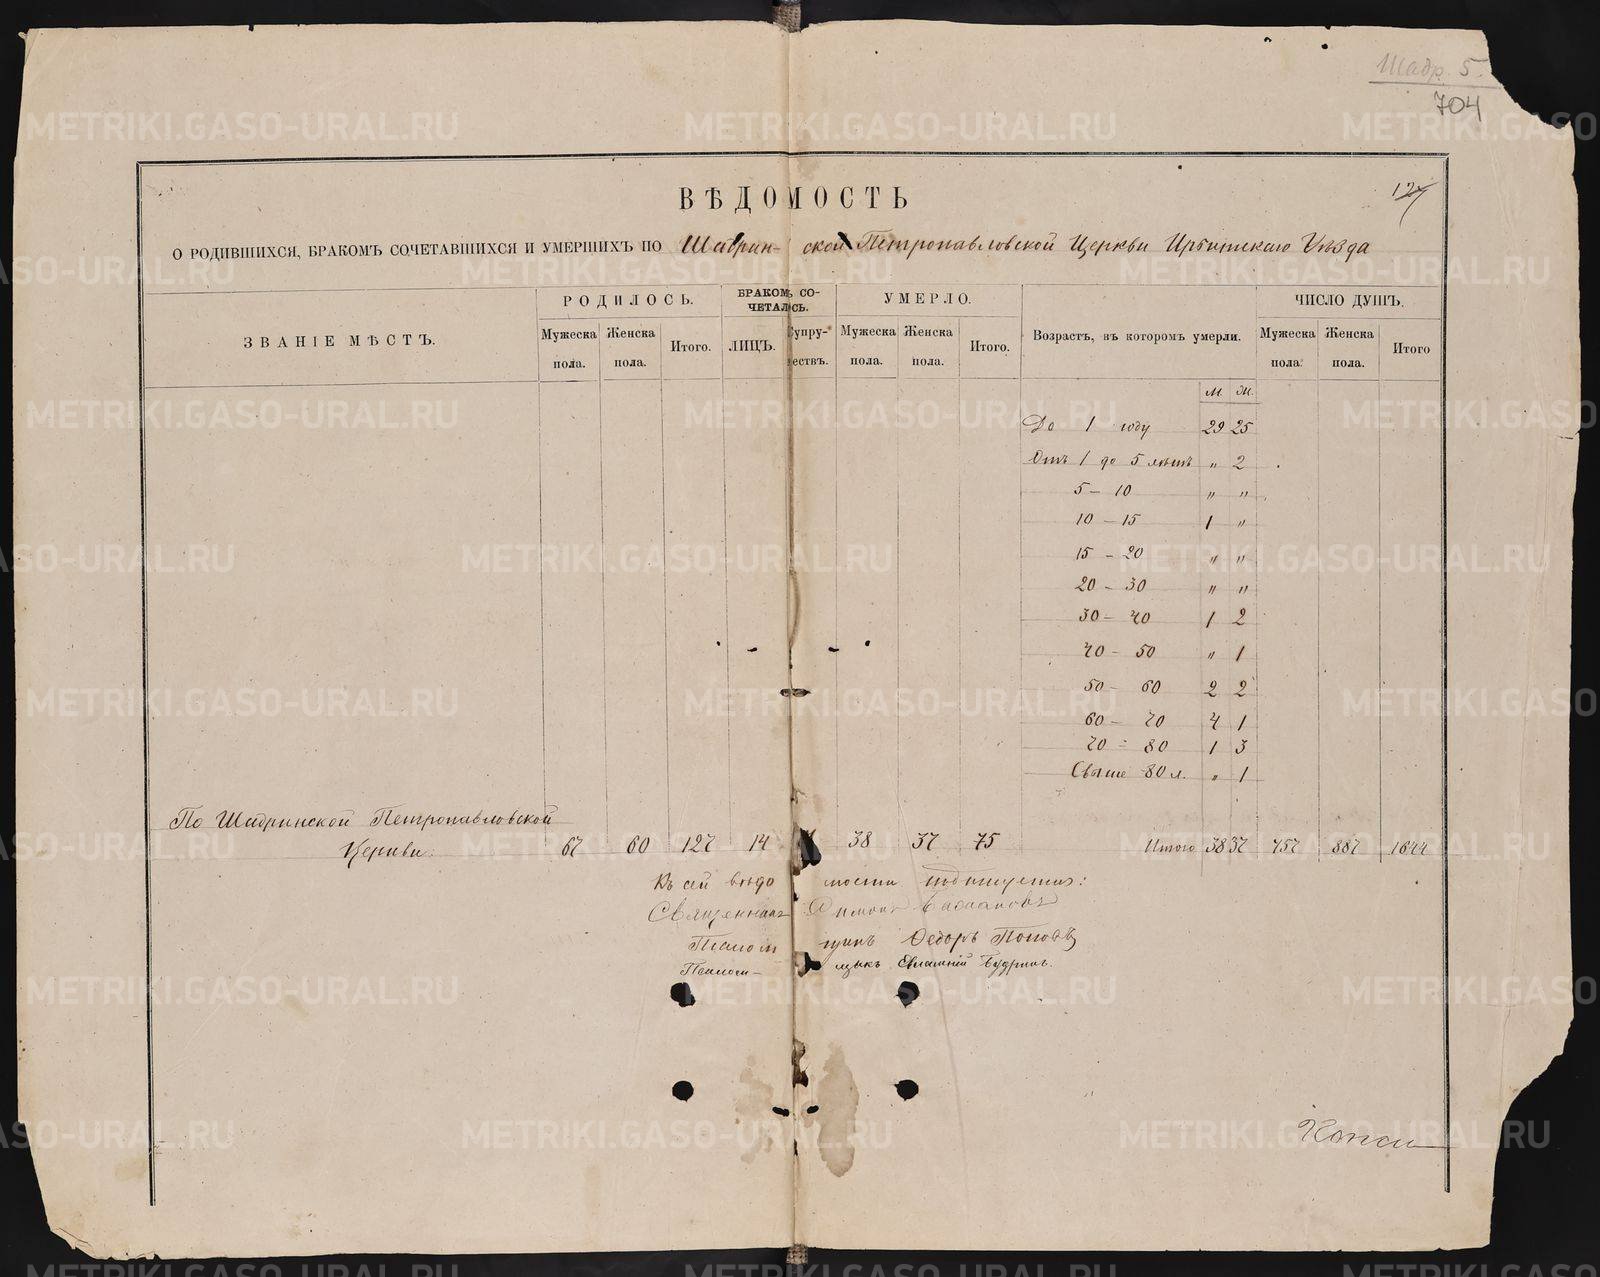 Шадр. 5.
704
127
ВѢДОМОСТЬ
О РОДИВШИХСЯ, БРАКОМЪ СОЧЕТАВШИХСЯ И УМЕРШИХЪ ПО Шадрин- ской Петропавловской Церкви Ирбитскаго Уѣзда
ЗВАНІЕ МѢСТЪ.
РОДИЛОСЬ.
БРАКОМЪ СО-
ЧЕТАЛОСЬ.
УМЕРЛО.
Возрастъ, въ которомъ умерли.
ЧИСЛО ДУШЪ.
Мужеска пола. Женска пола. Итого. ЛИЦЪ. Супру-ествъ. Мужеска пола. Женска пола. Итого. Мужеска пола. Женска пола. Итого
М. Ж.
До 1 году 29 25
Отъ 1 до 5 лѣтъ " 2
5 - 10 " "
10 - 15 1 "
15 - 20 " "
20 - 30 " "
30 - 40 1 2
40 - 50 " 1
50 - 60 2 2
60 - 70 4 1
70 - 80 1 3
Свыше 80 л. " 1
По Шадринской Петропавловской
Церкви. 67 60 127 14 38 37 75 Итого 38 37 757 887 1644
Къ сей вѣдо мости подпишутся:
Священникъ Симонъ
Псалом щикъ Ѳедоръ Поповъ
Псалом- щикъ Евлампій Будринъ.
METRIKI.GASO-URAL.RU